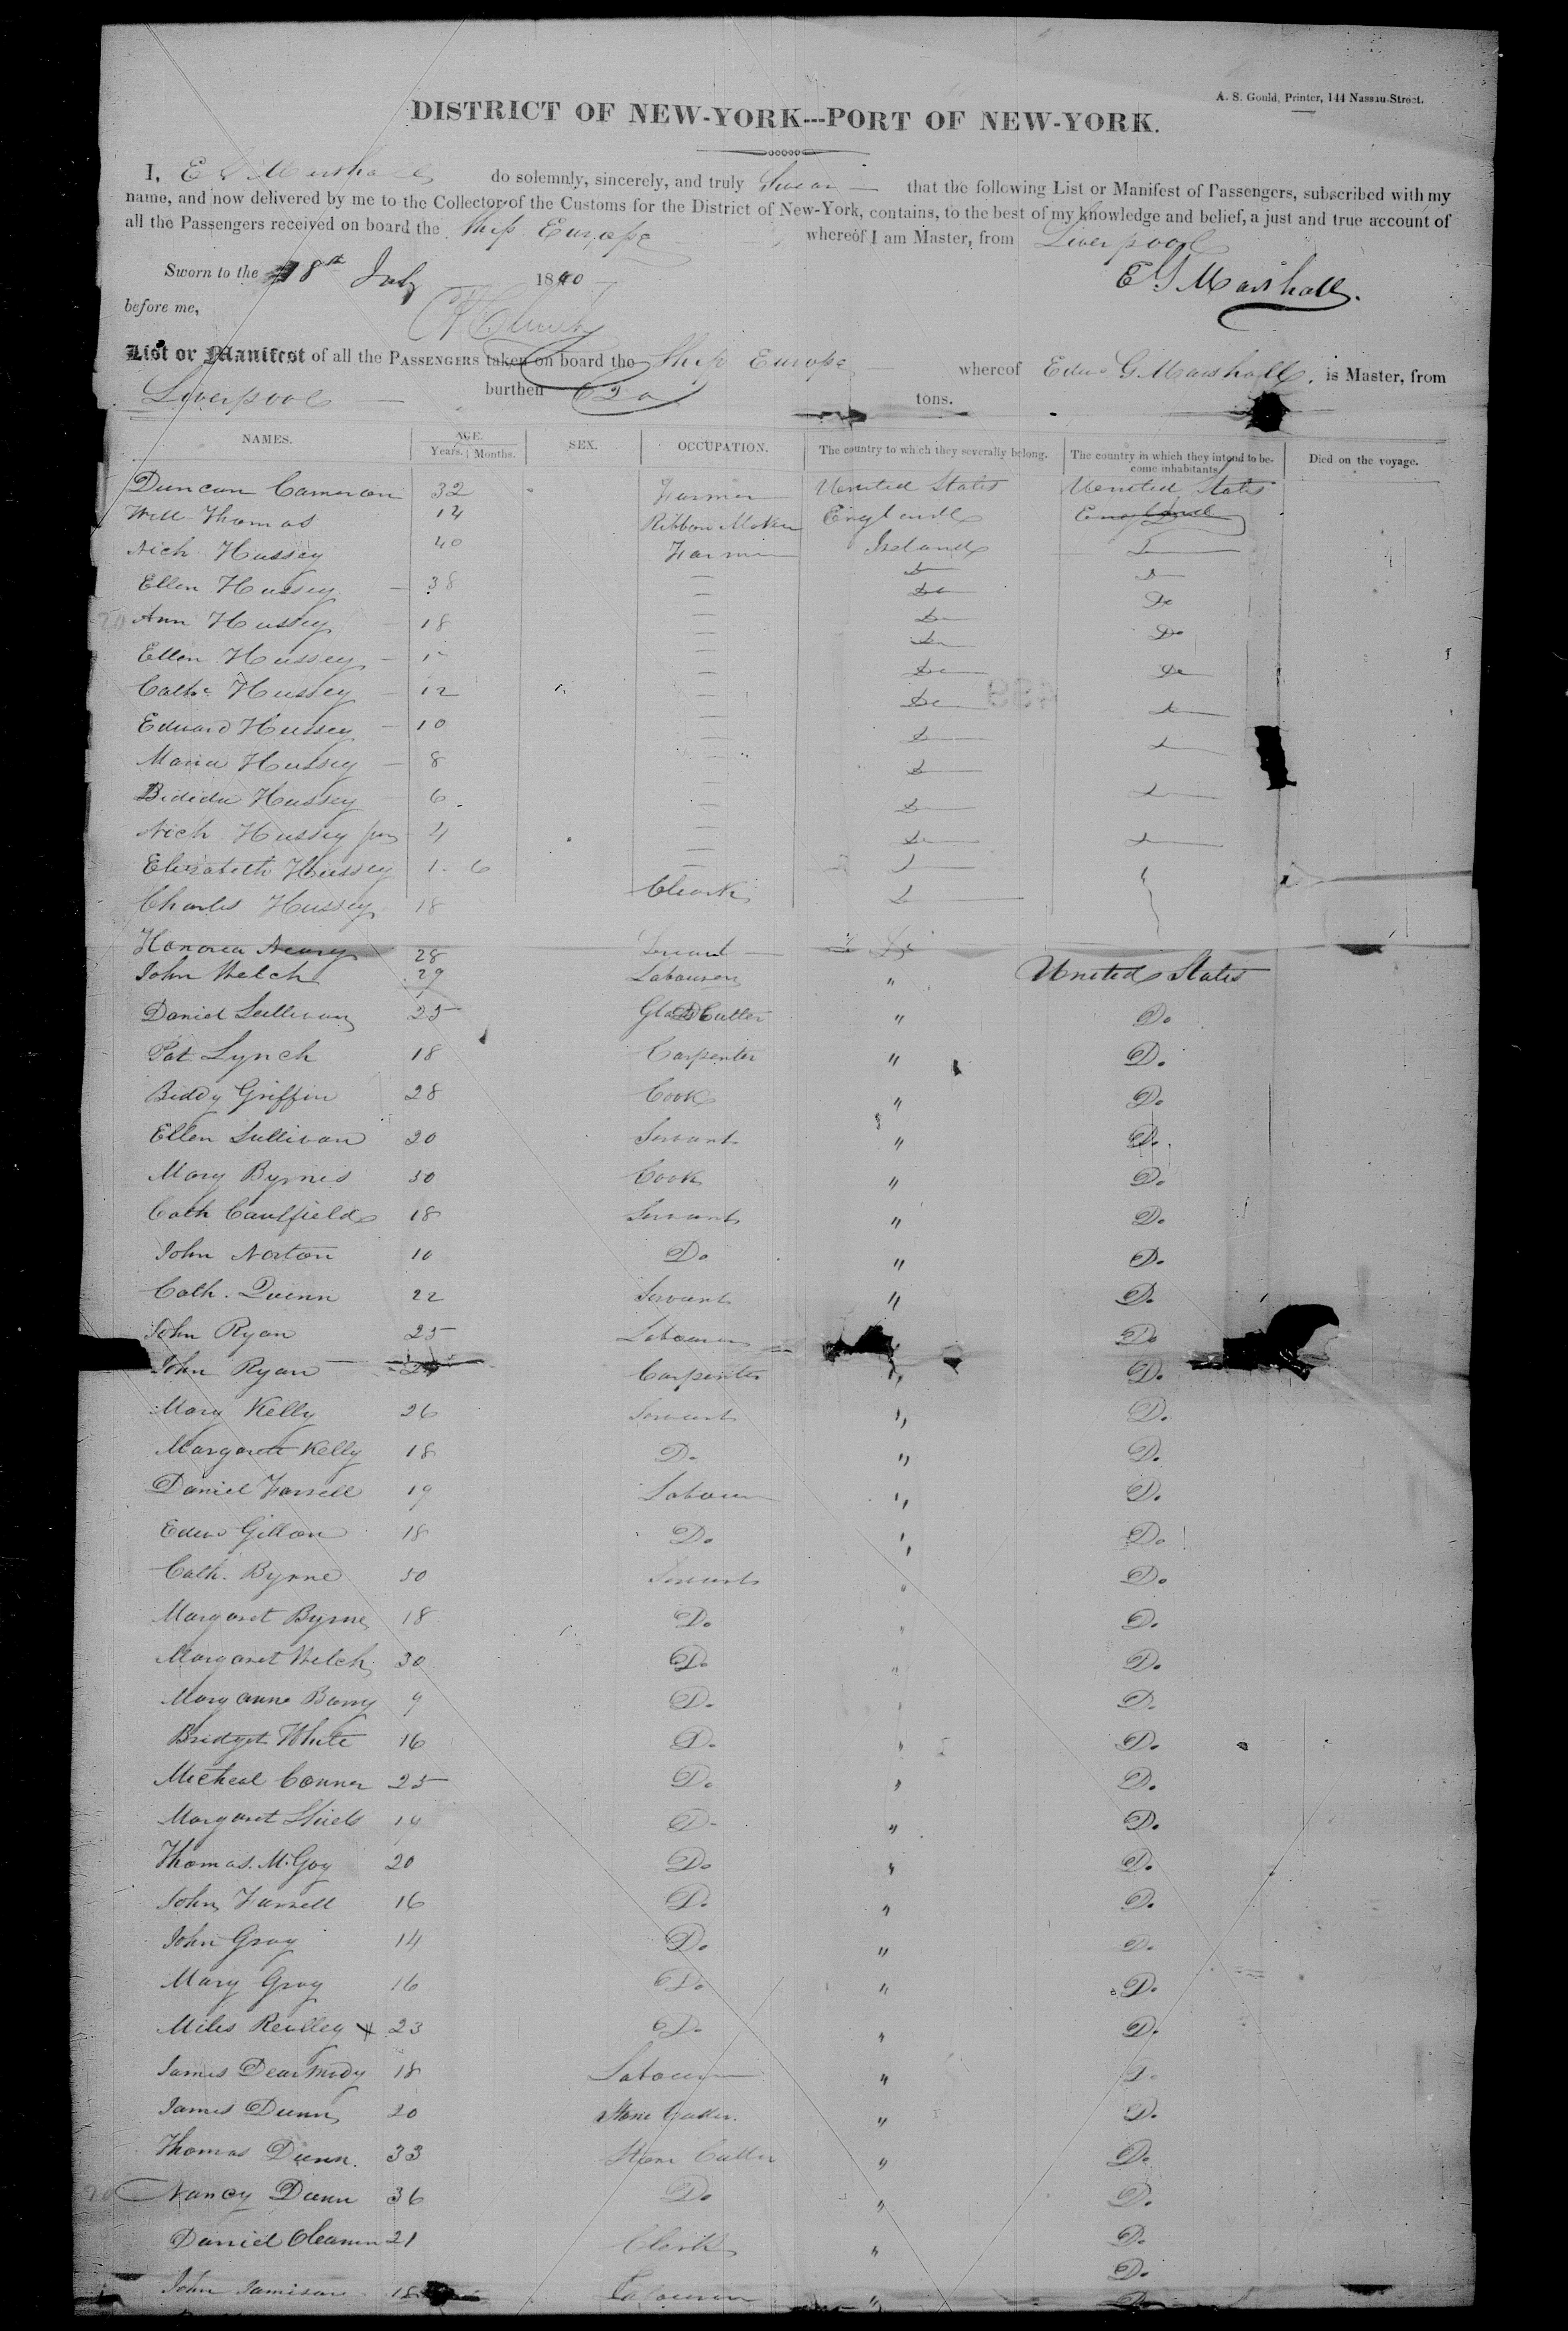 A. S. Gould, Printer, 144 Nassau-Street.
DISTRICT OF NEW-YORK---PORT OF NEW-YORK.
I, E G Marshall do solemnly, sincerely, and truly Swear that the following List or Manifest of Passengers, subscribed with my
name, and now delivered by me to the Collector of the Customs for the District of New-York, contains, to the best of my knowledge and belief, a just and true account of
all the Passengers received on board the Ship Europe whereof I am Master, from Liverpool
Sworn to the 18th July 1840 E G Marshall.
before me,
List or Manifest of all the PASSENGERS taken on board the Ship Europe whereof Edwd G Marshall. is Master, from
Liverpool burthen 620 tons.
NAMES. AGE. Years. Months. SEX. OCCUPATION. The country to which they severally belong. The country in which they intend to become inhabitants. Died on the voyage.
Duncan Cameron 32 Farmer United States United States
Will Thomas 14 Ribbon Maker England England
Nich Hussey 40 Farmer Ireland Do
Ellen Hussey 38 Do Do
20 Ann Hussey 18 Do Do
Ellen Hussey Do Do
Cathe Hussey 12 Do Do
Edward Hussey 10 Do Do
Maria Hussey 8 Do Do
Hussey 6 Do Do
Nich Hussey jun 4 Do Do
Elizabeth Hussey 1 6 Do "
Charles Hussey 18 Clerk Do
Honorea 28 Servant Do
John Welch 29 Labourer " United States
Daniel Sullivan 25 Glass Cutter " Do
Pat Lynch 18 Carpenter " Do
Biddy Griffin 28 Cook " Do
Ellen Sullivan 20 Servant " Do
Mary Byrnes 30 Cook " Do
Cath Caulfield 18 Servant " Do
John Norton 10 Do " Do
Cath. Quinn 22 Servant " Do
John Ryan 25 Labourer " Do
John Ryan Carpenter " Do
Mary Kelly 26 Servant " Do
Margarett Kelly 18 Do " Do
Daniel Farrell 19 Labourer " Do
Edwd Gillon 18 Do " Do
Cath. Byrne 30 Servant " Do
Margaret Byrne 18 Do " Do
Margaret Welch 30 Do " Do
Mary anne Barry 9 Do " Do
Bridget White 16 Do " Do
Micheal Conner 25 Do " Do
Margaret Shiels 14 Do " Do
Thomas. McGoy 20 Do " Do
John Farrell 16 Do " Do
John Gray 14 Do " Do
Mary Gray 16 Do " Do
Miles Reilley 23 Do " Do
James Dearmody 18 Labourer " Do
James Dunn 20 Stone Cutter. " Do
Thomas Dunn. 33 Stone Cutter " Do
Nancy Dunn 36 Do " Do
Daniel 21 Clerk " Do
John Jamison 18 Labourer " Do